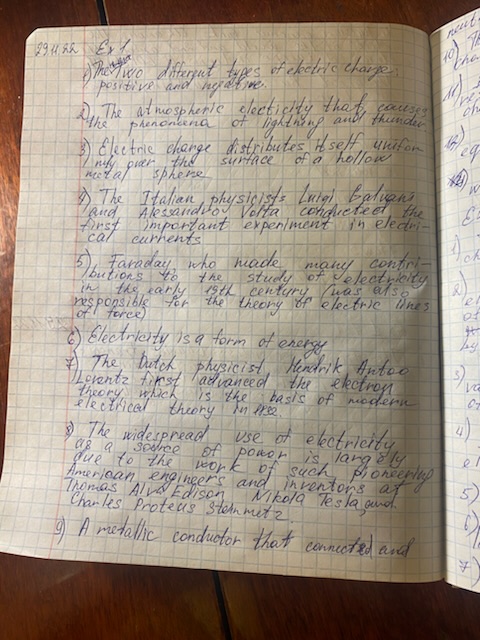 29.11.22 Ex 1.
1) The two different types of electric charge
positive and negative.
2) The atmospheric electicity that causes
the phenomena of lightning and thunder
3) Electric charge distributes itself unifor-
mly over the surface of a hollow
metal sphere
4) The Italian physicists Luigi Galvani
and Alessandro Volta conducted the
first important experiment in electri-
cal currents
5) Faraday who made many contri-
butions to the study of electricity
in the early 19th century was also
responsible for the theory of electric lines
of force)
6) Electricity is a form of energy
7) The Dutch physicist Hendrik Antoo
Lorentz first advanced the electron
theory which is the basis of modern
electrical theory in
8) The widespread use of electricity
as a source of power is largely
due to the work of such pioneering
American engineers and inventors as
Thomas Alva Edison Nikola Tesla, and
Charles Proteus Steinmetz.
9) A metallic conductor that connected and
10)
11)
12)
1)
2)
3)
4)
5)
6)
7)